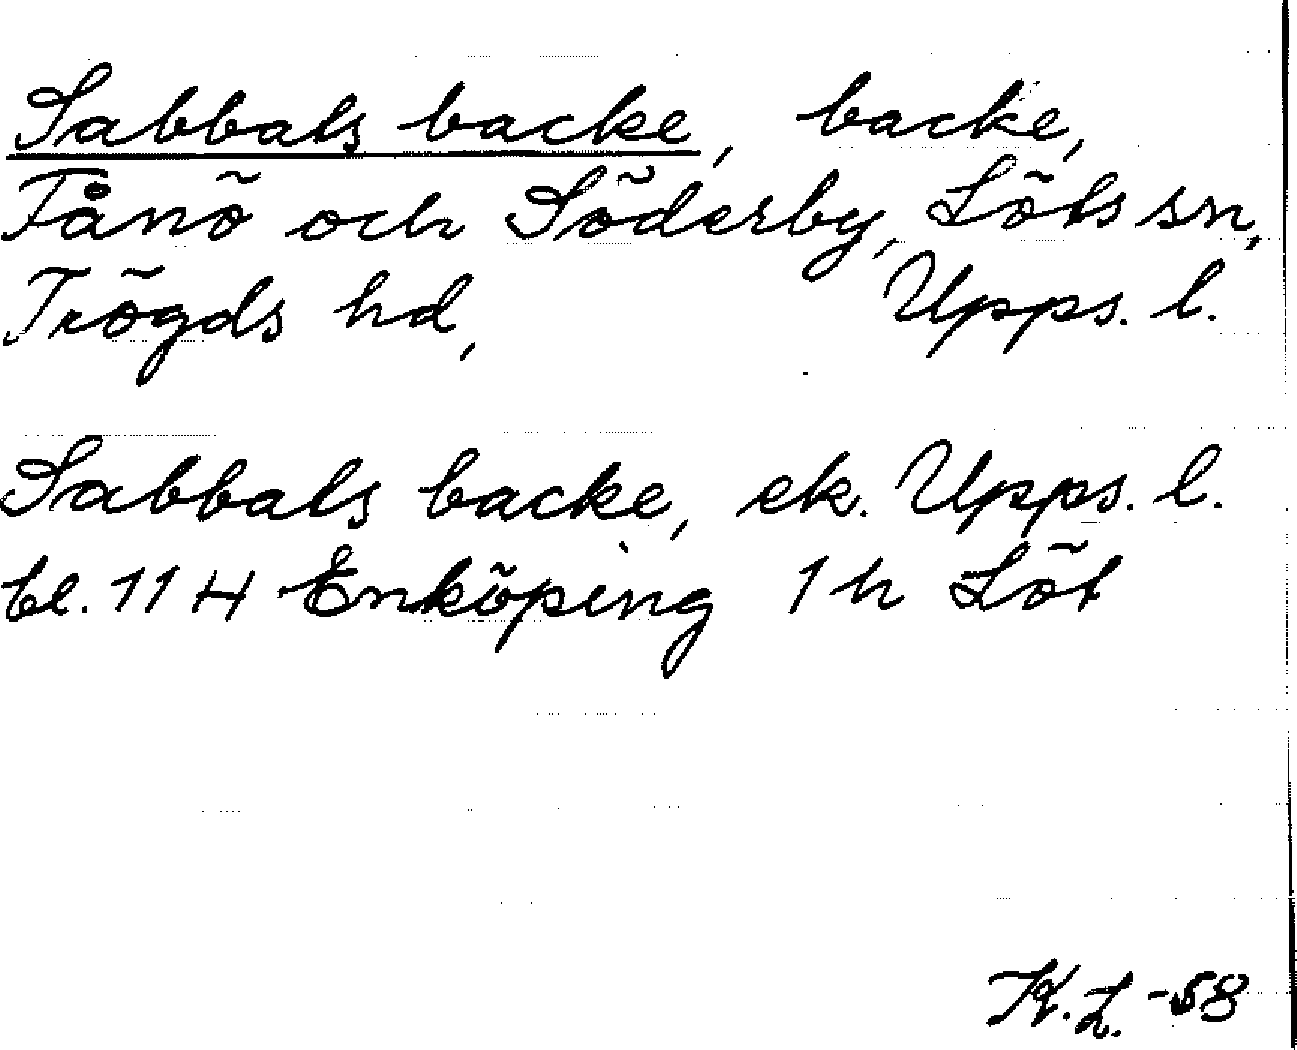 Sabbals backe, backe,
Fånö och Söderby, Löts sn,
Trögds hd, Upps. l.
Sabbals backe, ek. Upps. l.
bl. 11 H Enköping 1 h Löt
K.L. -58